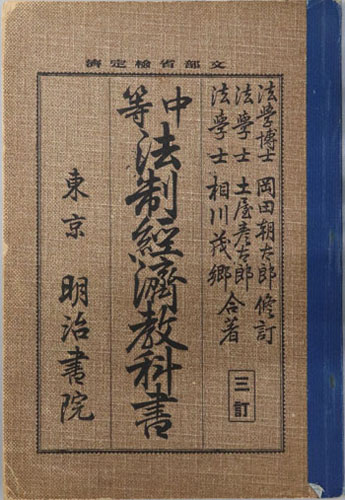 文部省検定済
法學博士 岡田朝太郎 修訂
法學士 土屋彦太郎
法學士 相川茂郷 合著
三訂
中等
法制經濟教科書
東京 明治書院